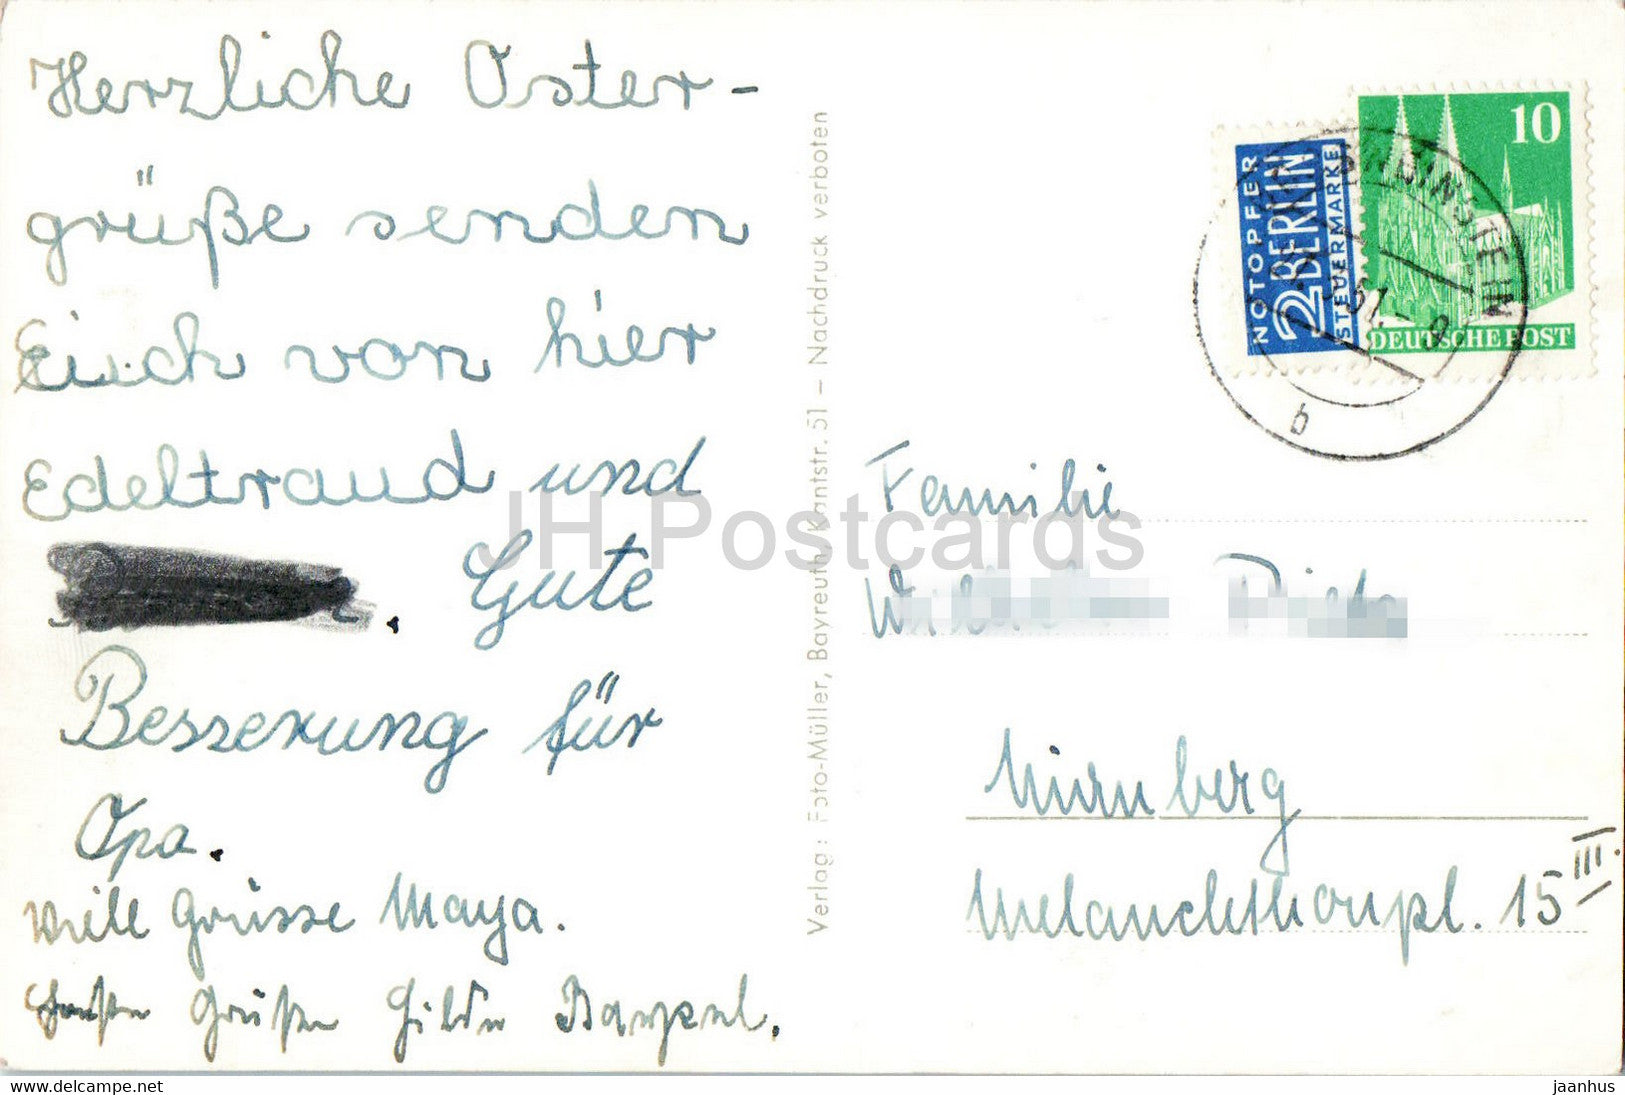 Herzliche Oster-
grüße senden
Euch von hier
Edeltraud und
. Gute
Besserung für
Opa.
viele Grüsse Maya.
Grüßen Hilde
Verlag: Foto-Müller, Bayreuth, Kantstr. 51 – Nachdruck verboten
NOTOPFER
2 BERLIN
STEUERMARKE
10
DEUTSCHE POST
51.-9
b
Familie
Nürnberg
Melanchthonpl. 15 III.
JH Postcards
www.delcampe.net
jaanhus